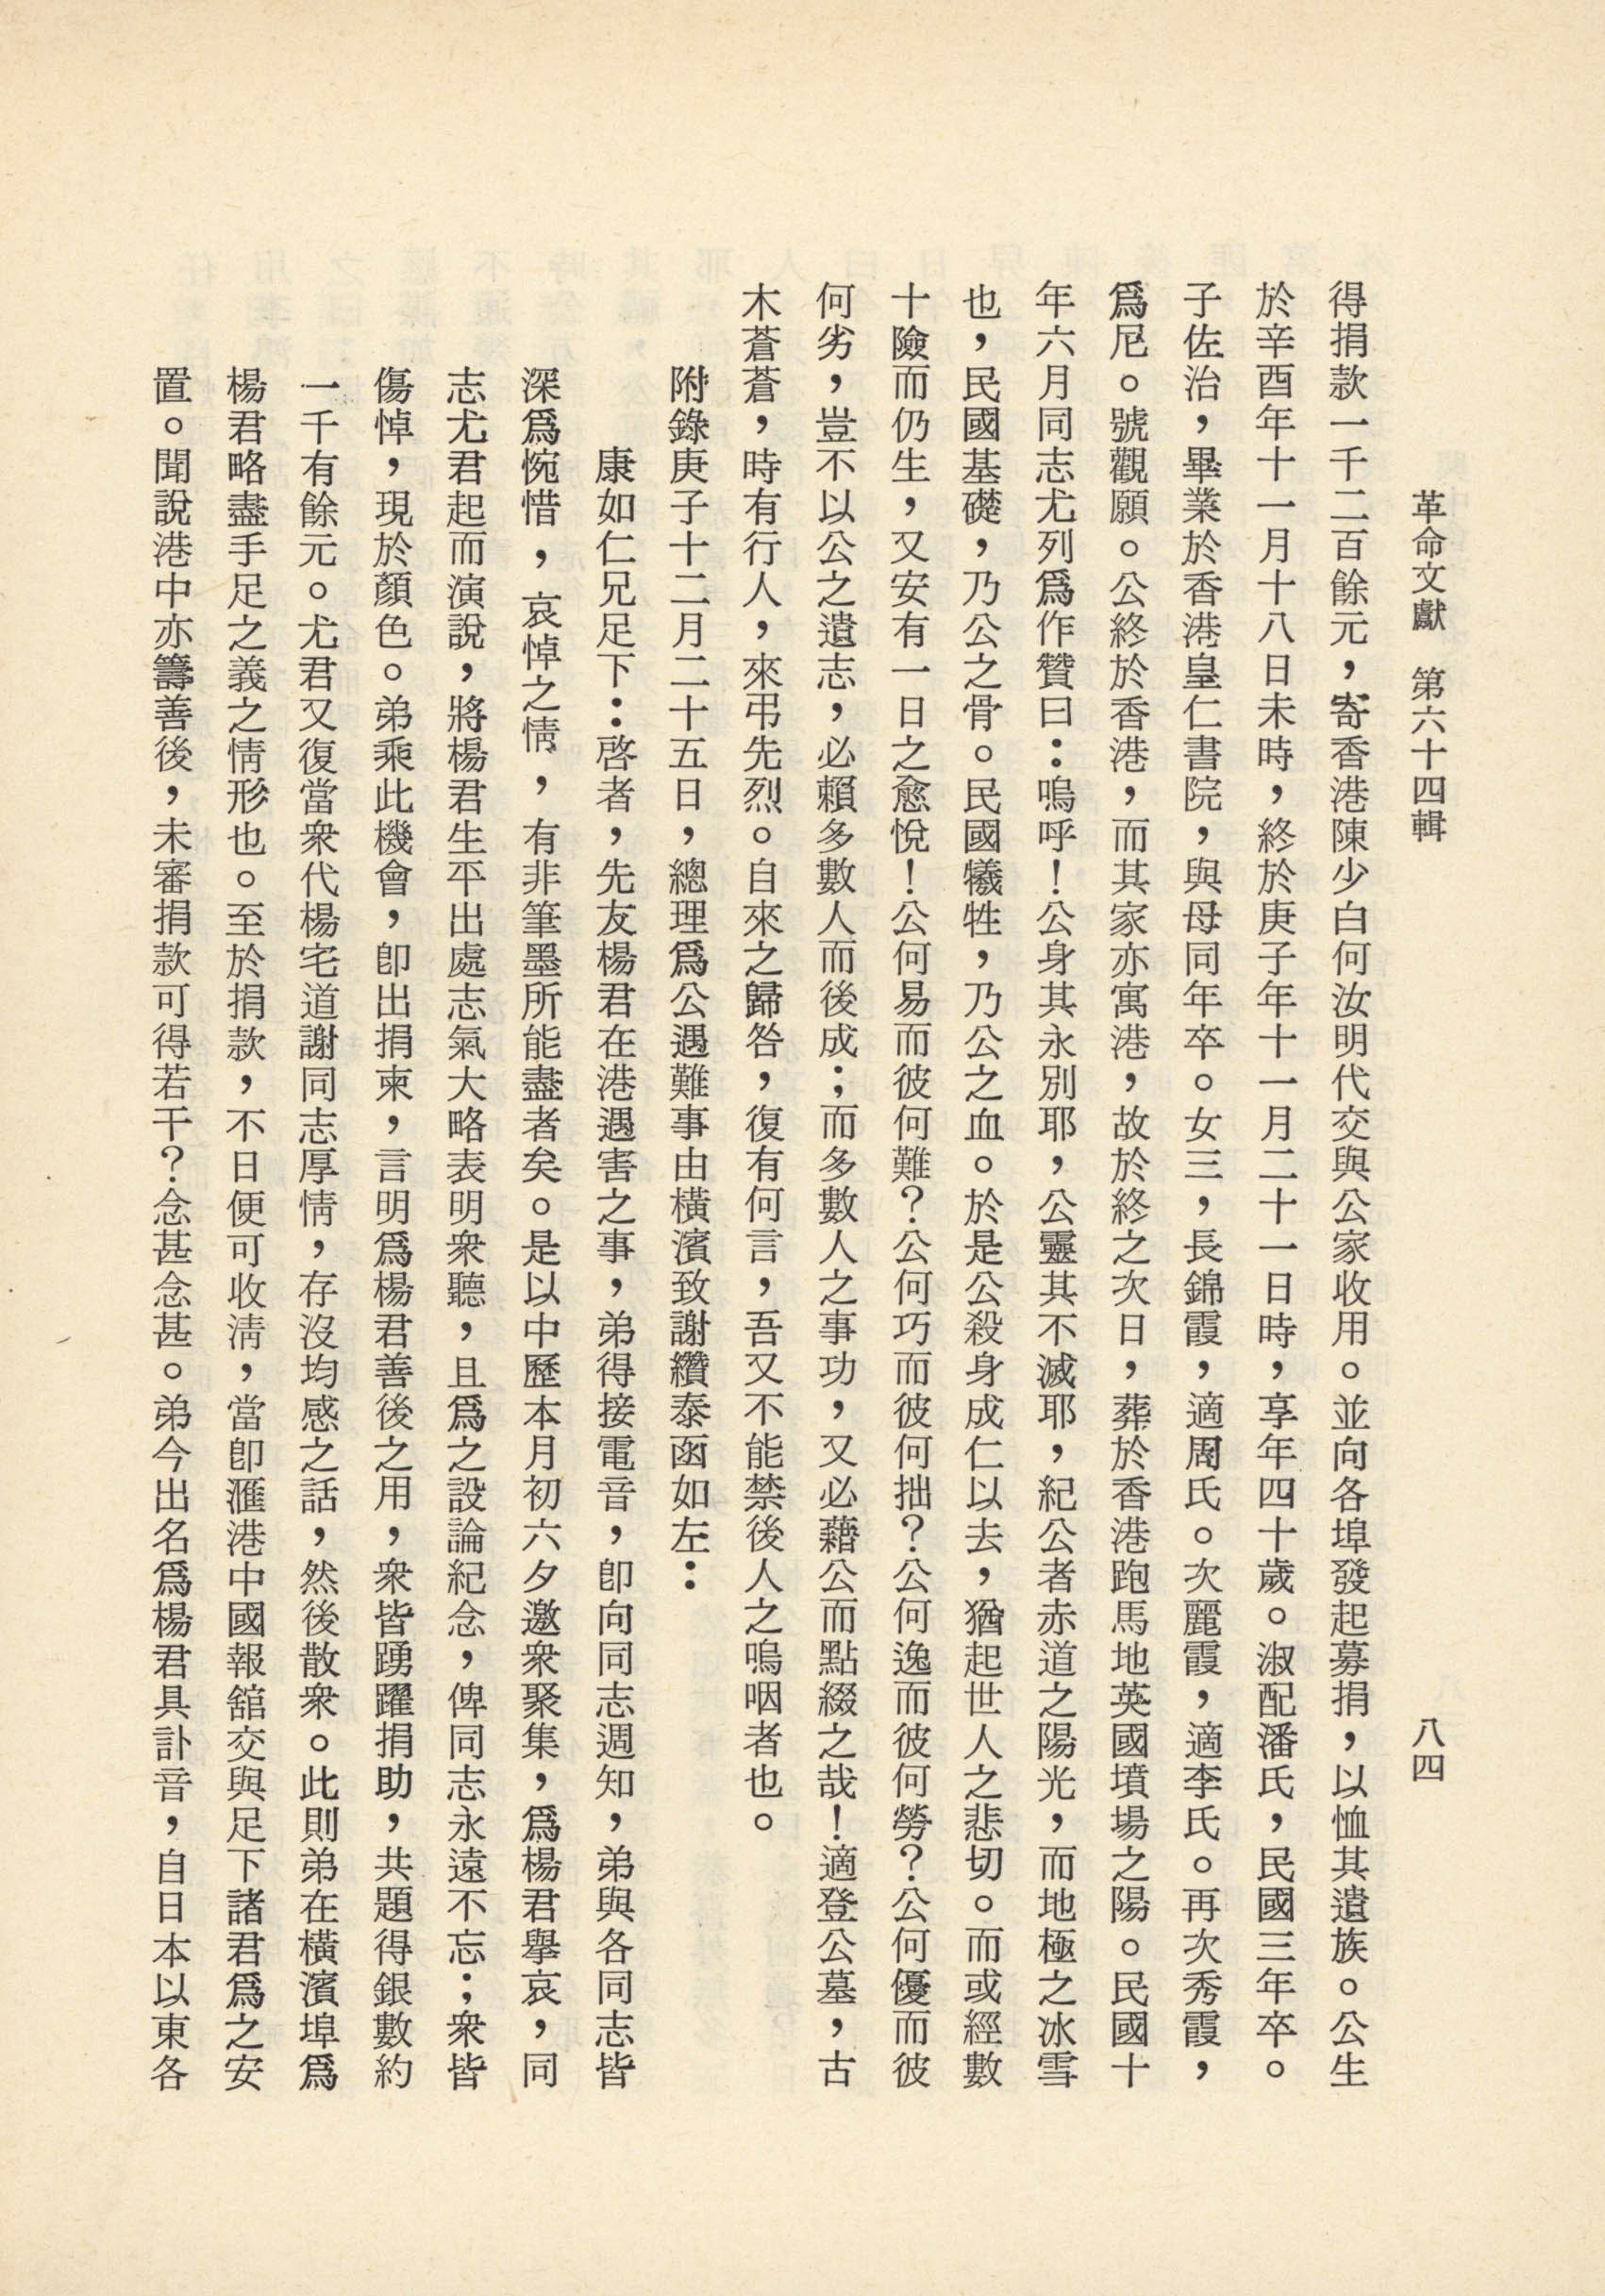 革命文獻　第六十四輯
八四
得捐款一千二百餘元，寄香港陳少白何汝明代交與公家收用。並向各埠發起募捐，以恤其遺族。公生
於辛酉年十一月十八日未時，終於庚子年十一月二十一日時，享年四十歲。淑配潘氏，民國三年卒。
子佐治，畢業於香港皇仁書院，與母同年卒。女三，長錦霞，適周氏。次麗霞，適李氏。再次秀霞，
爲尼。號觀願。公終於香港，而其家亦寓港，故於終之次日，葬於香港跑馬地英國墳場之陽。民國十
年六月同志尤列爲作贊曰：嗚呼！公身其永別耶，公靈其不滅耶，紀公者赤道之陽光，而地極之冰雪
也，民國基礎，乃公之骨。民國犧牲，乃公之血。於是公殺身成仁以去，猶起世人之悲切。而或經數
十險而仍生，又安有一日之愈悅！公何易而彼何難？公何巧而彼何拙？公何逸而彼何勞？公何優而彼
何劣，豈不以公之遺志，必賴多數人而後成；而多數人之事功，又必藉公而點綴之哉！適登公墓，古
木蒼蒼，時有行人，來弔先烈。自來之歸咎，復有何言，吾又不能禁後人之嗚咽者也。
附錄庚子十二月二十五日，總理爲公遇難事由橫濱致謝纘泰函如左：
康如仁兄足下：啓者，先友楊君在港遇害之事，弟得接電音，卽向同志週知，弟與各同志皆
深爲惋惜，哀悼之情，有非筆墨所能盡者矣。是以中歷本月初六夕邀衆聚集，爲楊君舉哀，同
志尤君起而演說，將楊君生平出處志氣大略表明衆聽，且爲之設論紀念，俾同志永遠不忘；衆皆
傷悼，現於顏色。弟乘此機會，卽出捐柬，言明爲楊君善後之用，衆皆踴躍捐助，共題得銀數約
一千有餘元。尤君又復當衆代楊宅道謝同志厚情，存沒均感之話，然後散衆。此則弟在橫濱埠爲
楊君略盡手足之義之情形也。至於捐款，不日便可收淸，當卽滙港中國報舘交與足下諸君爲之安
置。聞說港中亦籌善後，未審捐款可得若干？念甚念甚。弟今出名爲楊君具訃音，自日本以東各